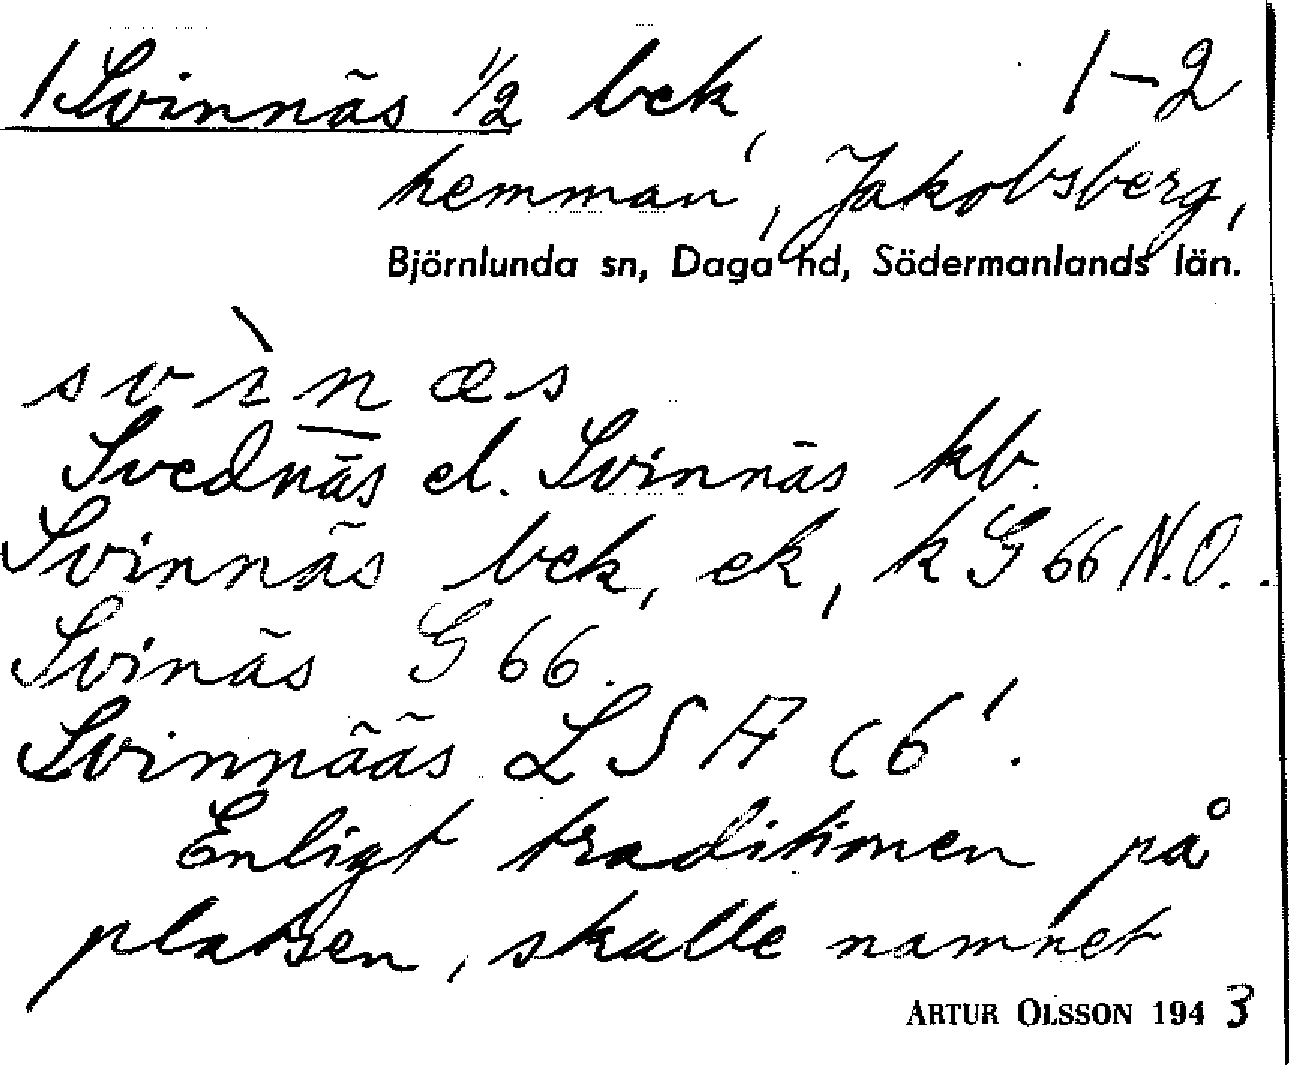 1 Svinnäs 1/2 bck, 1-2
hemman, Jakobsberg,
Björnlunda sn, Daga hd, Södermanlands län.
svìnæs
Svednäs el. Svinnäs kb.
Svinnäs bek, ek, k G 66 N.O..
Svinäs G 66.
Svinnääs LSA C6'.
Enligt traditionen på
platsen, skulle namnet
ARTUR OLSSON 1943